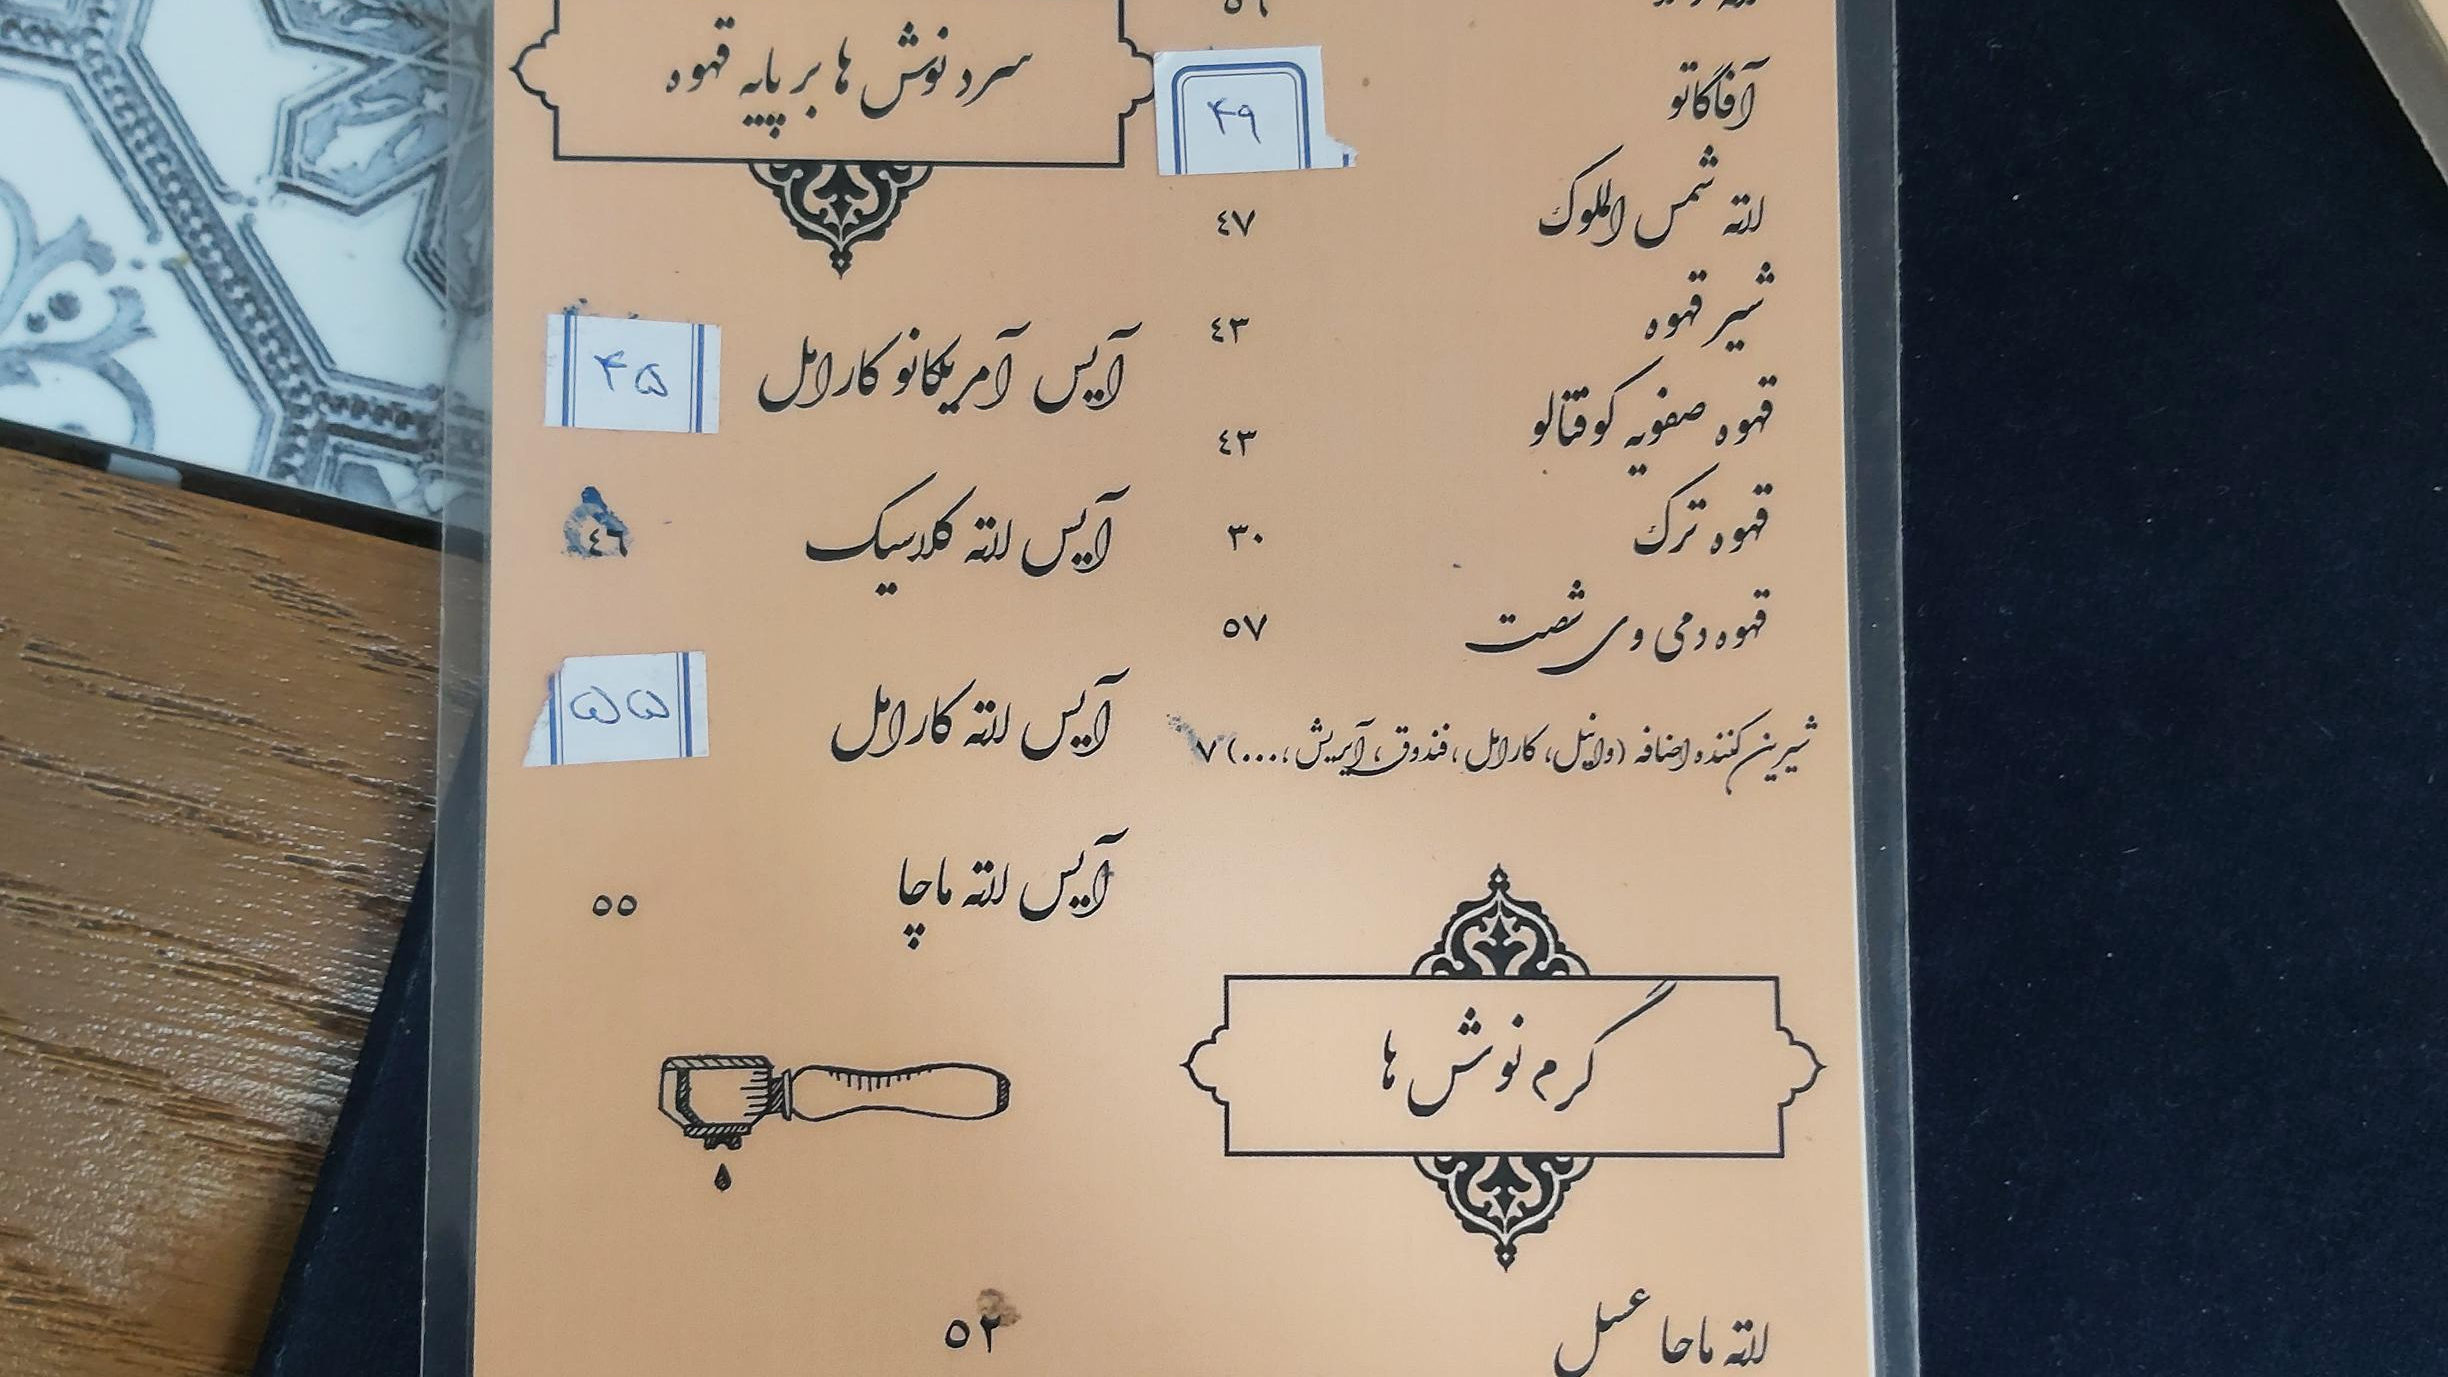 آفاگاتو ۴۹
لاته شمس الملوک ٤٧
شیر قهوه ٤٣
قهوه صفویه کوفتالو ٤٣
قهوه ترک ٣٠
قهوه دمی وی شصت ٥٧
شیرین کننده اضافه (وانیل، کارامل، فندوق، آیریش، ...) ٧
گرم نوش ها
لاته ماچا عسل ٥٢
سرد نوش ها بر پایه قهوه
آیس آمریکانو کارامل ۴۵
آیس لاته کلاسیک ٤٦
آیس لاته کارامل ۵۵
آیس لاته ماچا ٥٥